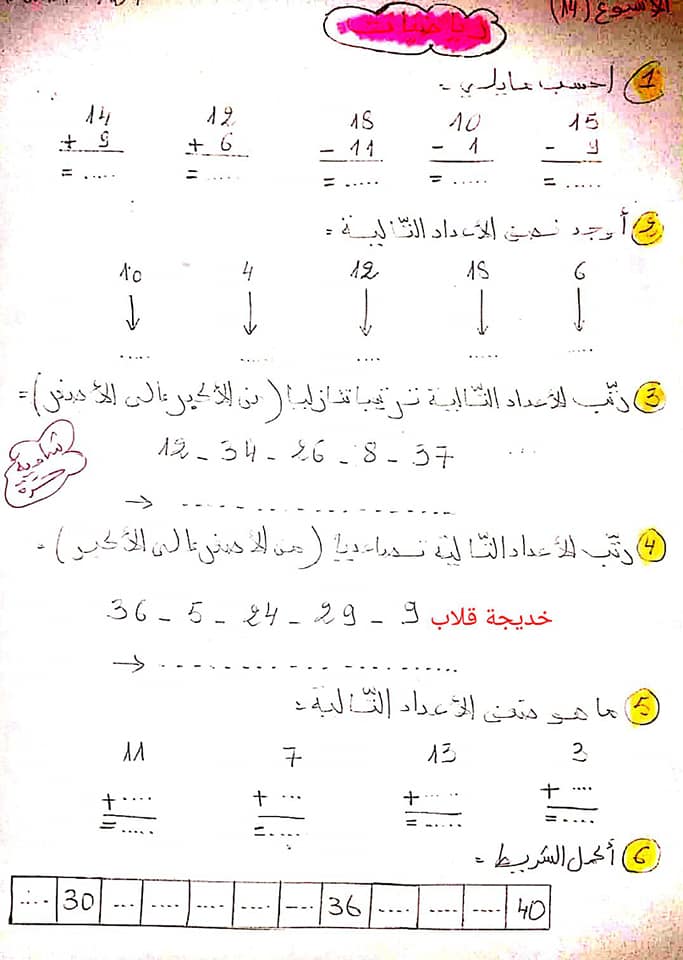 الأسبوع (14)
رياضيات
1 احسب ما يلي :
14 12 18 10 15
+ 9 + 6 - 11 - 1 - 9
= ..... = ..... = ..... = ..... = .....
2 أوجد نصف الأعداد التّالية :
10 4 12 18 6
..... ..... ..... ..... .....
3 رتّب الأعداد التّالية ترتيبا تنازليا (من الأكبر إلى الأصغر) :
12 - 34 - 26 - 8 - 37 ...
→ ....................
4 رتّب الأعداد التّالية تصاعديا (من الأصغر إلى الأكبر) :
36 - 5 - 24 - 29 - 9 خديجة قلاب
→ ....................
5 ما هو ضعف الأعداد التّالية :
11 7 13 3
+ .... + .... + .... + ....
= ..... = ..... = ..... = .....
6 أكمل الشريط :
.... 30 .... .... .... .... .... 36 .... .... .... 40